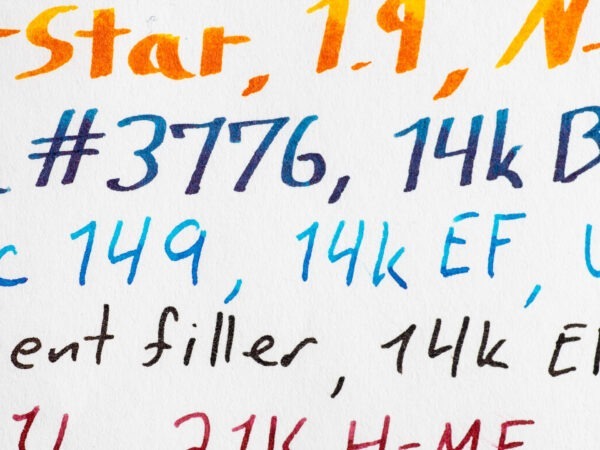 -Star, 1.9, N-
#3776, 14k B
c 149, 14k EF,
ent filler, 14k E
21K H-MF